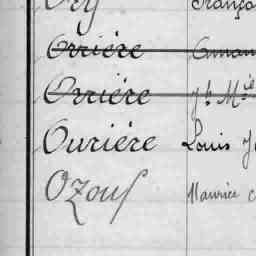 Ory Franço
Orrière Aman
Orrière Jh Mie
Ourière Louis J
Ozouf Maurice